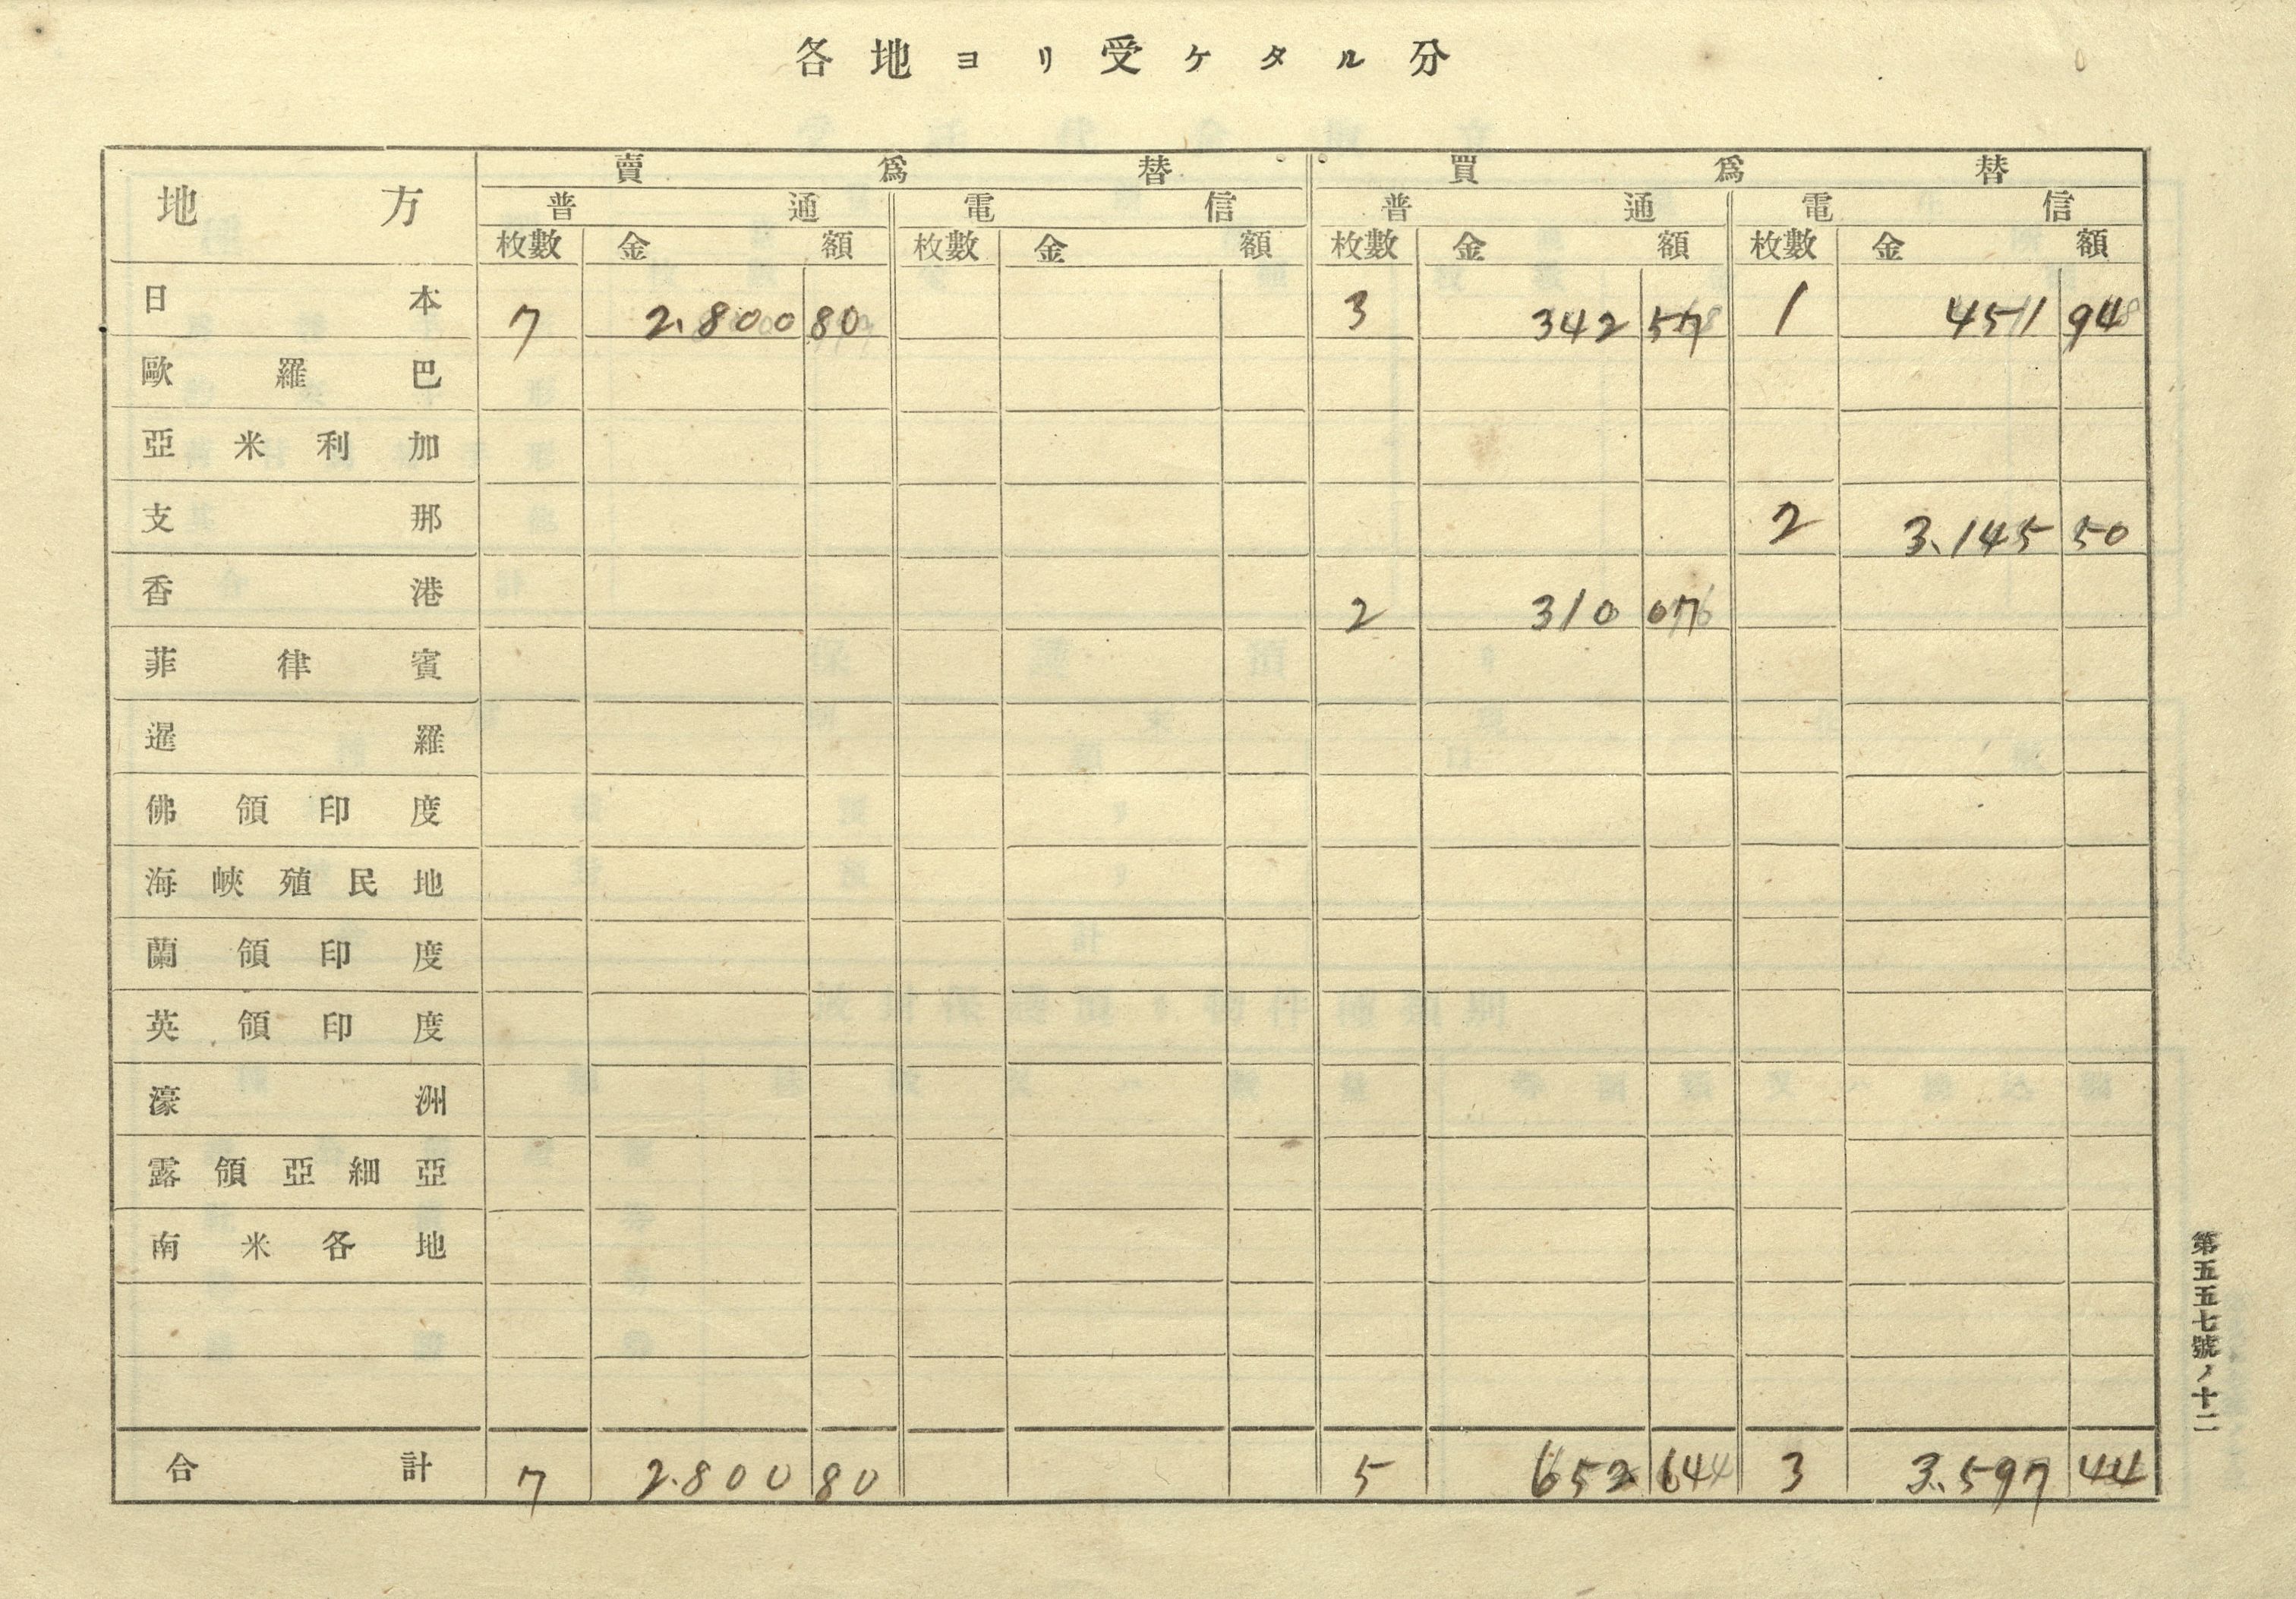 各地ヨリ受ケタル分
地方 賣爲替 買爲替
普通 電信 普通 電信
枚數 金額 枚數 金額 枚數 金額 枚數 金額
日本 7 2.800 80 3 342 57 1 451 94
歐羅巴
亞米利加
支那 2 3.145 50
香港 2 310 07
菲律賓
暹羅
佛領印度
海峽殖民地
蘭領印度
英領印度
濠洲
露領亞細亞
南米各地
合計 7 2.800 80 5 652 64 3 3.597 44
第五五七號ノ十二